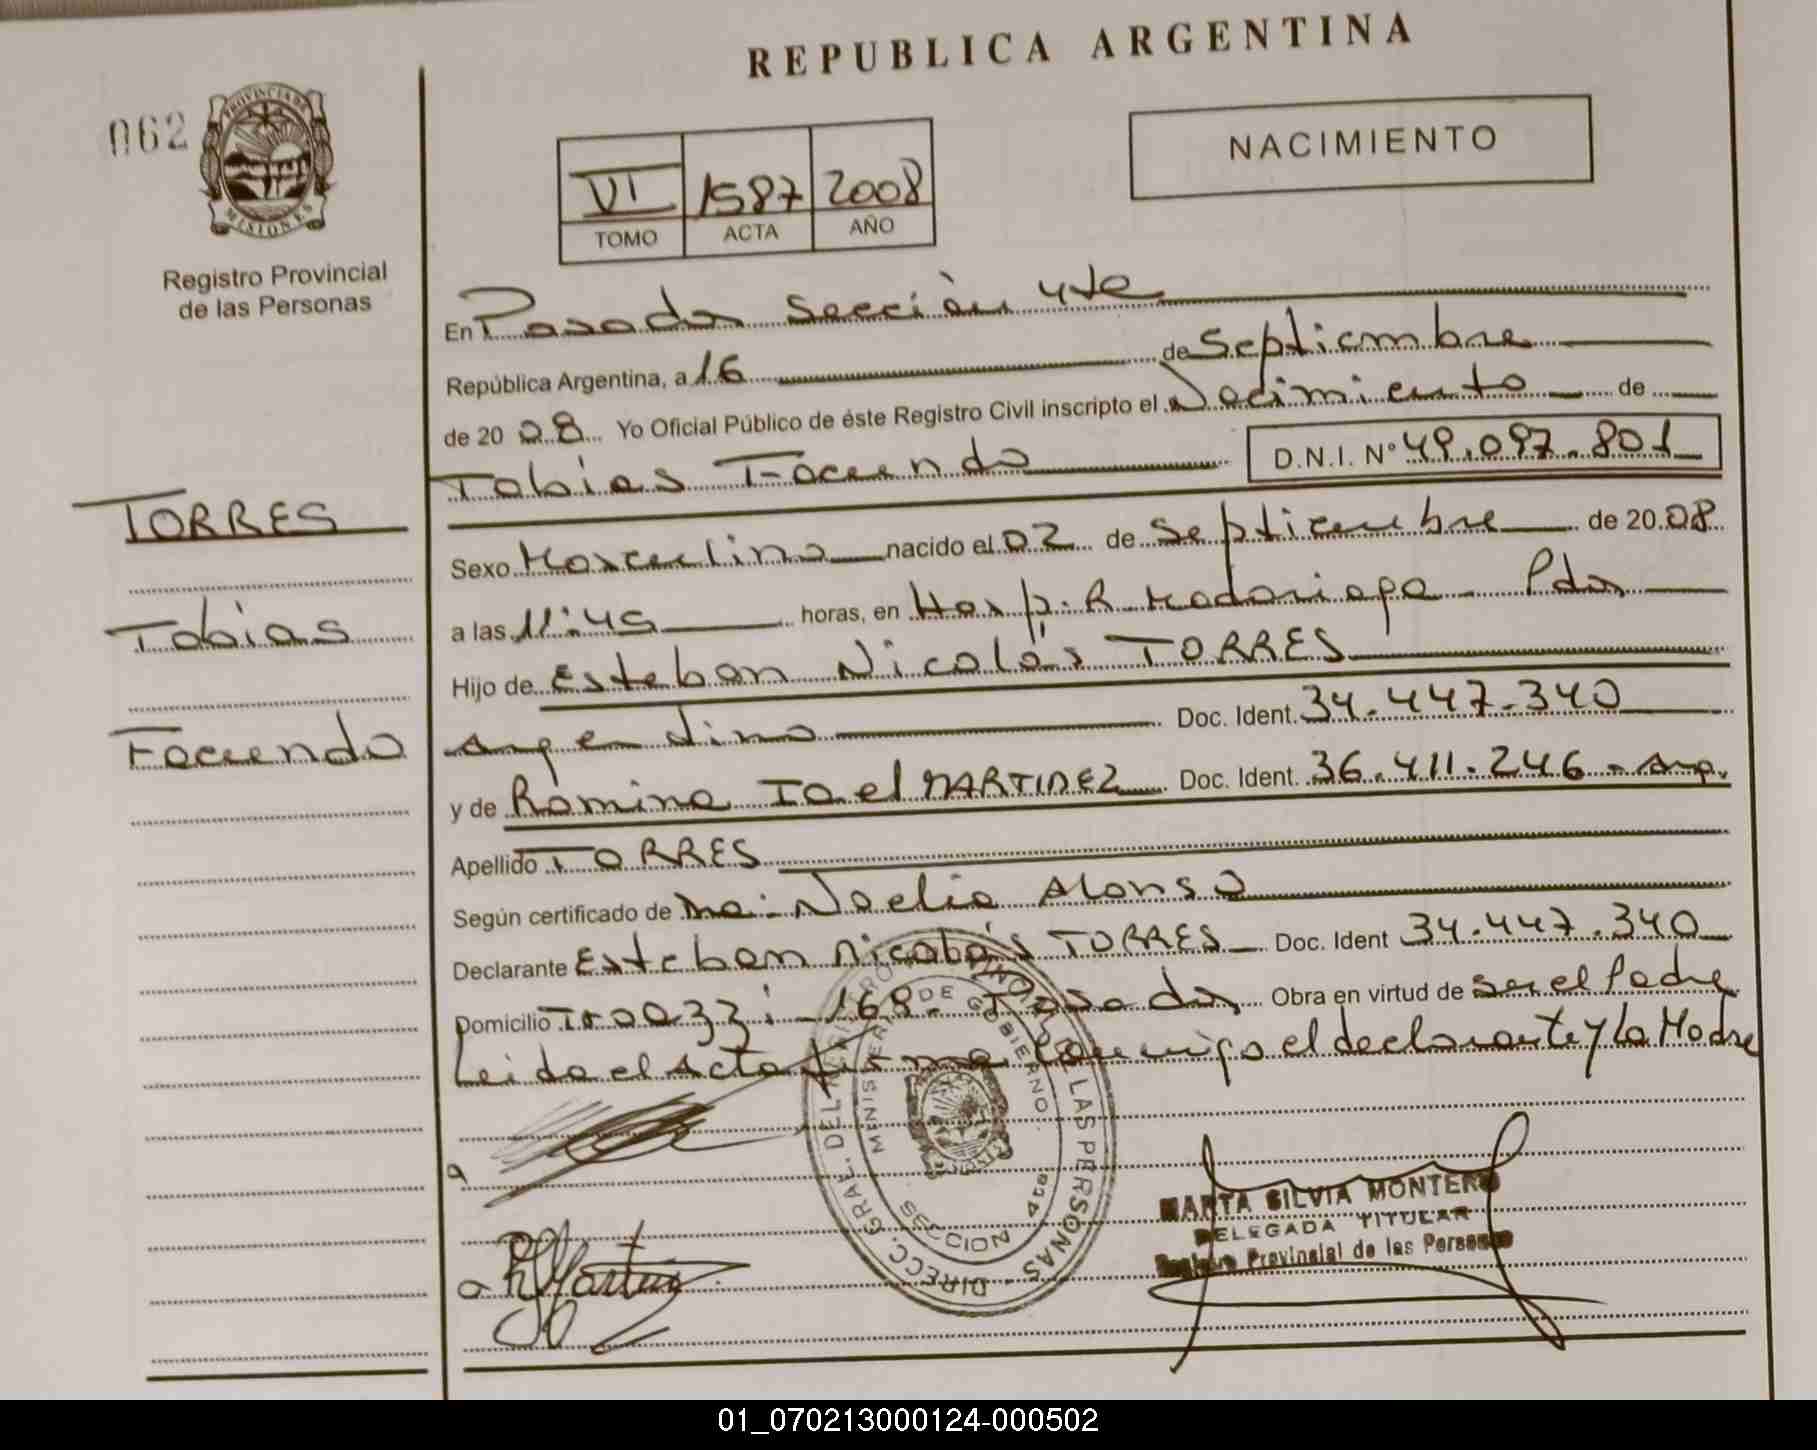 REPUBLICA ARGENTINA
062
PROVINCIA DE
MISIONES
Registro Provincial
de las Personas
VI 1587 2008
TOMO ACTA AÑO
NACIMIENTO
TORRES
Tobias
Facundo
En Posadas Sección 4ta
República Argentina, a 16 de Septiembre
de 2008 Yo Oficial Público de éste Registro Civil inscripto el Nacimiento de
Tobias Facundo D.N.I. N° 49.097.801
Sexo Masculino nacido el 02 de Septiembre de 2008
a las 11:45 horas, en Hosp. R Madariaga - Pdas
Hijo de Esteban Nicolás TORRES
Argentino Doc. Ident. 34.447.340
y de Romina Iael MARTINEZ Doc. Ident. 36.411.246 - Arg.
Apellido TORRES
Según certificado de Noelia Alonso
Declarante Esteban Nicolás TORRES Doc. Ident 34.447.340
Domicilio 168 - Posadas Obra en virtud de ser el Padre
Leida el Acta firma conmigo el declarante y La Madre
DIRECC. GRAL. DEL REGISTRO PROVINCIAL DE LAS PERSONAS
MINISTERIO DE GOBIERNO
SECCION 4ta
MARTA SILVIA MONTERO
DELEGADA TITULAR
Registro Provincial de las Personas
01_070213000124-000502